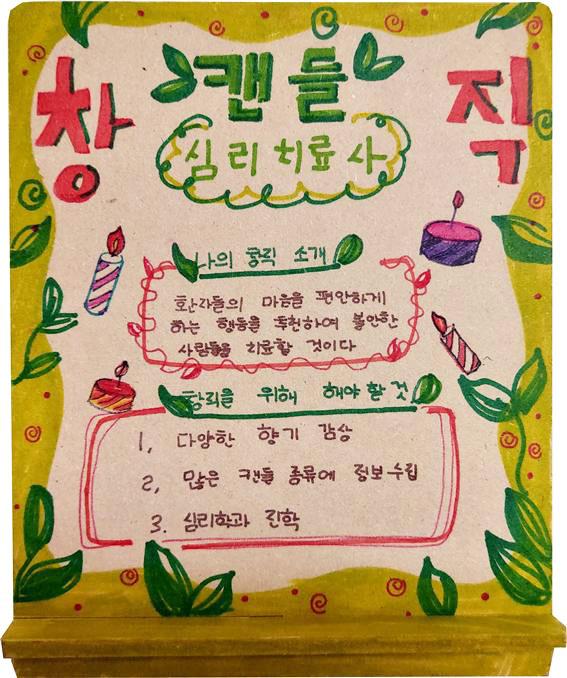 창직
캔들
심리치료사
나의 창직 소개
환자들의 마음을 편안하게
하는 행동을 추천하여 불안한
사람들을 치료할 것이다
창직을 위해 해야 할 것
1, 다양한 향기 감상
2, 많은 캔들 종류에 정보수집
3. 심리학과 진학